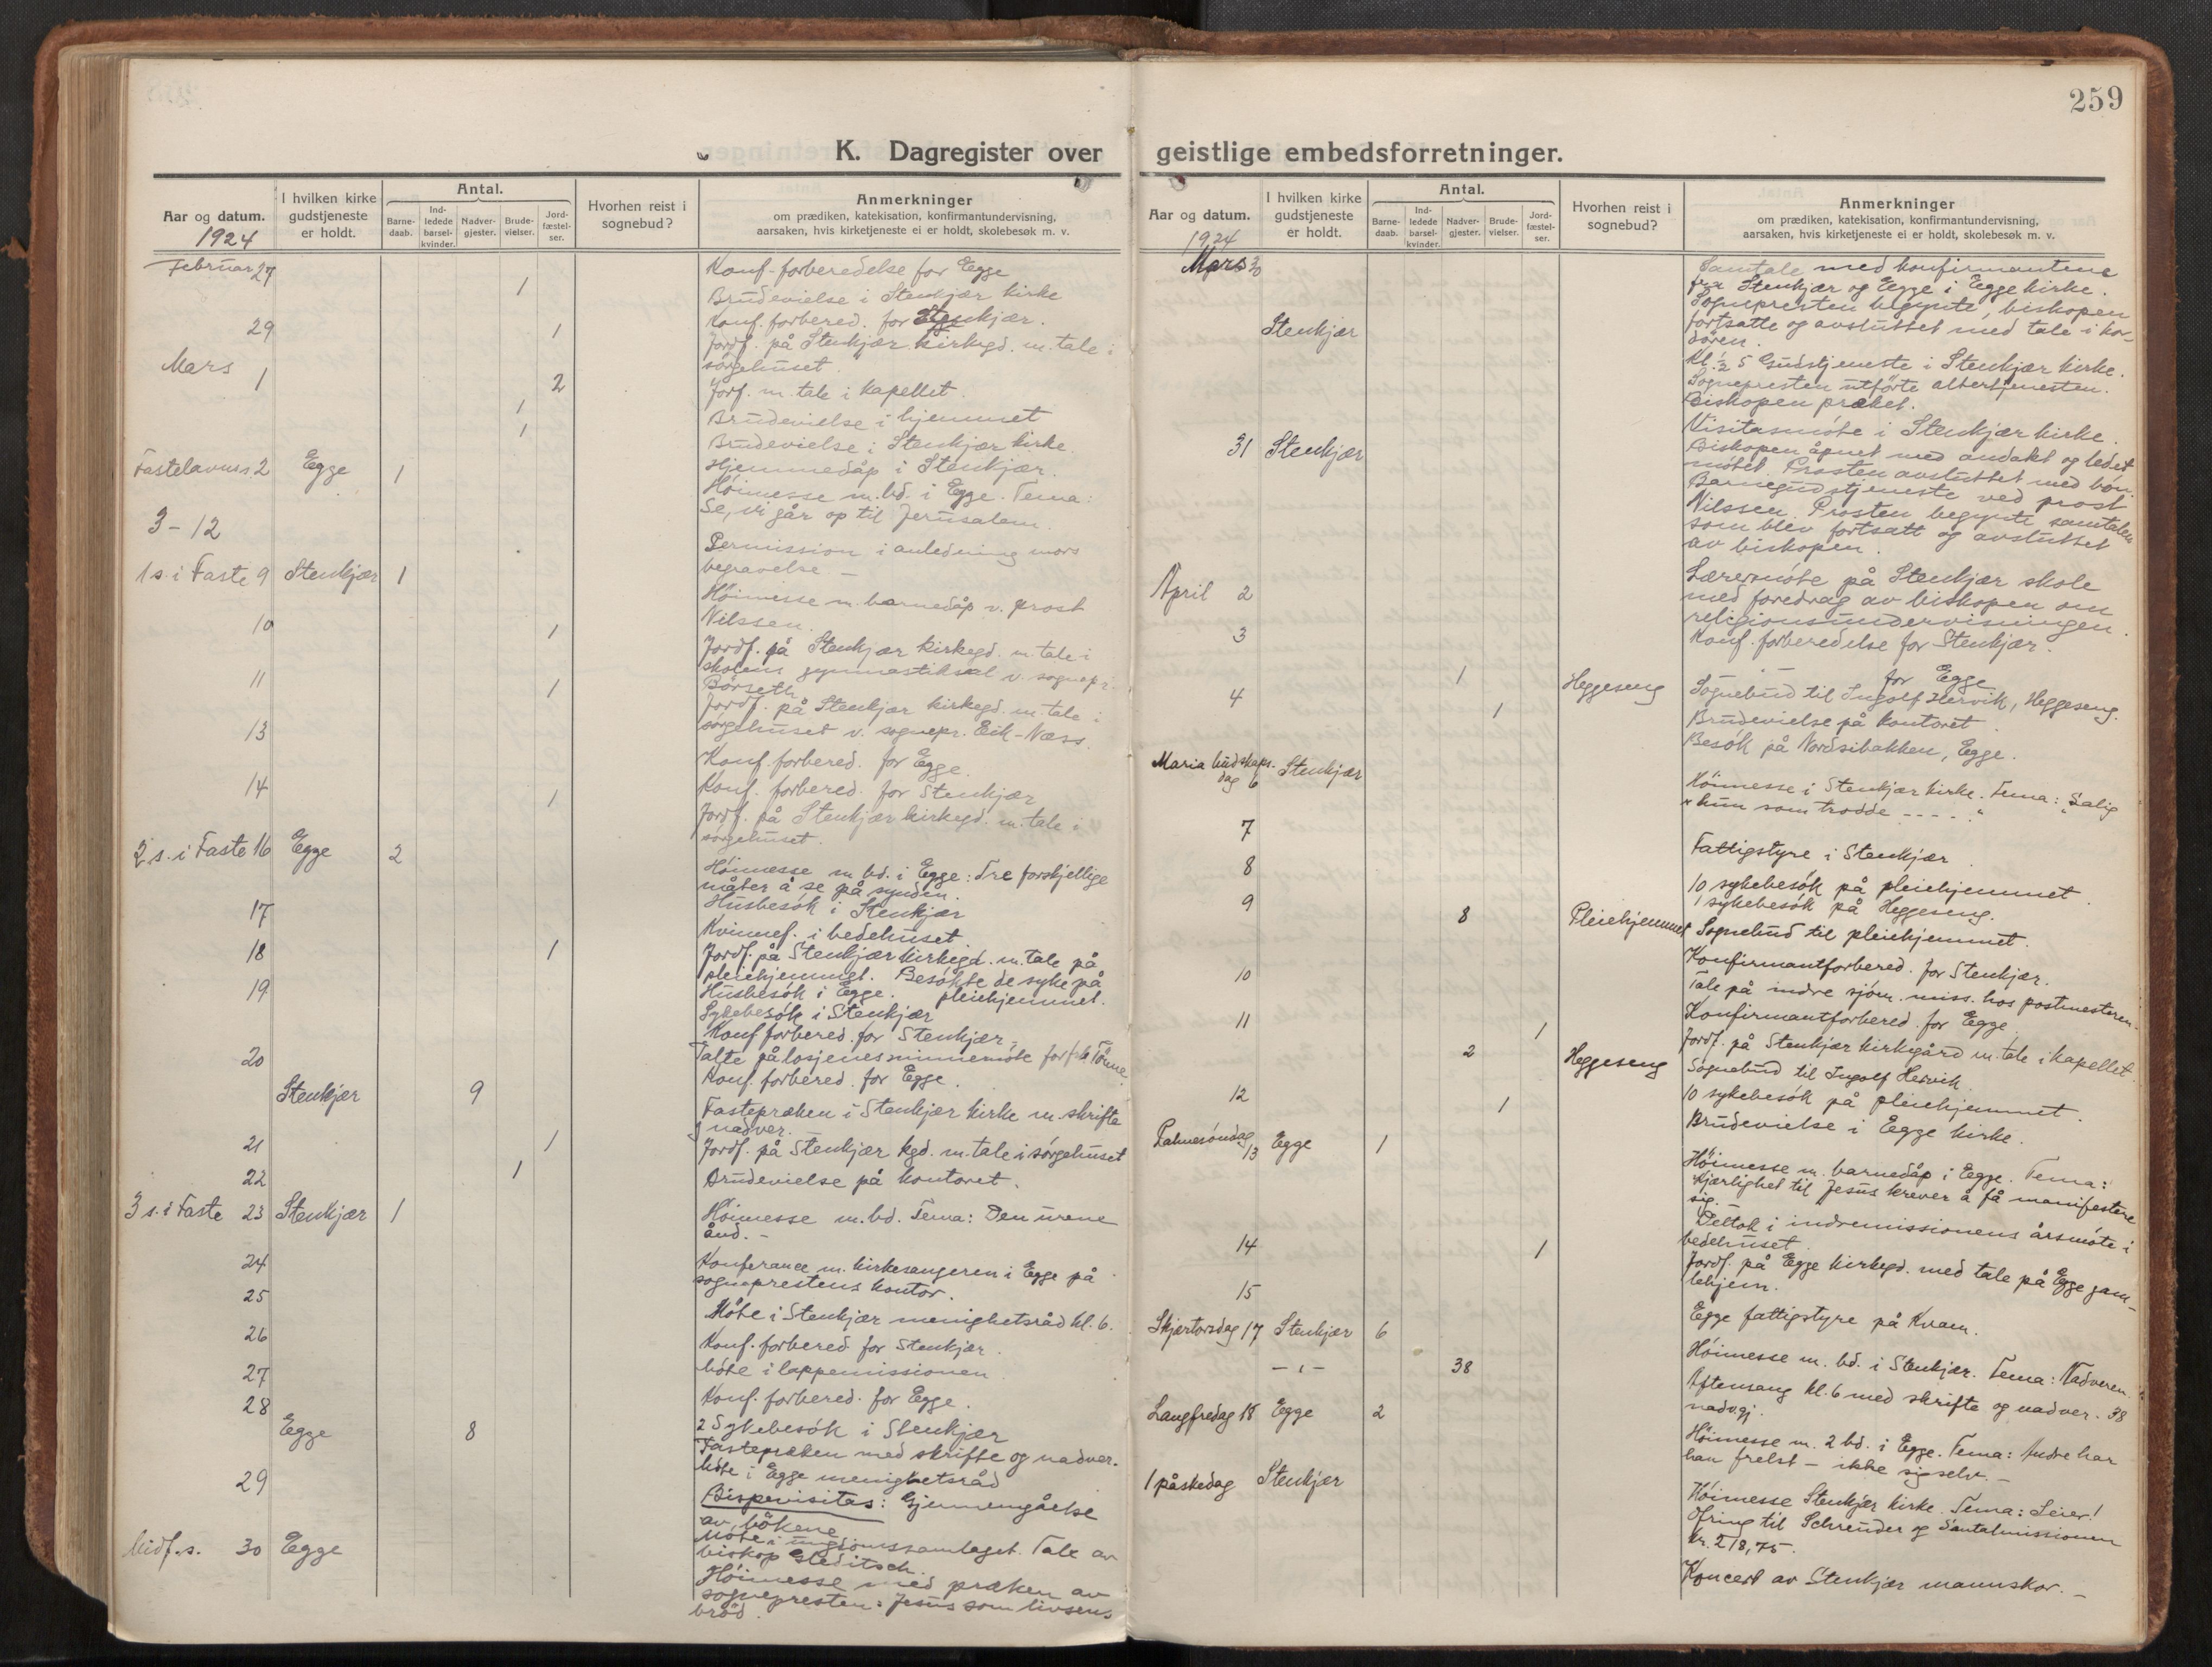 259
K. Dagregister over geistlige embedsforretninger.
Aar og datum.
1924
I hvilken kirke gudstjeneste er holdt.
Antal.
Barne-daab.
Ind-ledede barsel-kvinder.
Nadver-gjester.
Brude-vielser.
Jord-fæstel-ser.
Hvorhen reist i sognebud?
Anmerkninger
om prædiken, katekisation, konfirmantundervisning, aarsaken, hvis kirketjeneste ei er holdt, skolebesøk m. v.
Februar 27 Konf.-forberedelse for Egge
1 Brudevielse i Stenkjær kirke
Konf. forbered. for Stenkjær.
29 1 Jordf. på Stenkjær kirkegd. m. tale i
sørgehuset.
Mars 1 2 Jorf. m. tale i kapellet.
1 Brudevielse i hjemmet
1 Brudevielse i Stenkjær kirke
Hjemmedåp i Stenkjær.
Fastelavns 2 Egge 1 Høimesse m. bd. i Egge. Tema:
Se, vi går op til Jerusalem.
3-12 Permission i anledning mors
begravelse -
1 s. i Faste 9 Stenkjær 1 Høimesse m. barnedåp v. prost
Nilssen.
10 1 Jordf. på Stenkjær kirkegd. m. tale i
skolens gymnastiksal v. sognepr.
Børseth.
11 1 Jordf. på Stenkjær kirkegd. m. tale i
sørgehuset v. sognepr. Eik-Næss.
13 Konf. forbered. for Egge.
14 Konf. forbered. for Stenkjær
1 Jordf. på Stenkjær kirkegd. m. tale i
sørgehuset.
2 s. i Faste 16 Egge 2 Høimesse m bd. i Egge: Tre forskjellige
måter å se på synden.
17 Husbesøk i Stenkjær
Kvinnef. i bedehuset.
18 1 Jordf. på Stenkjær kirkegd. m. tale på
pleiehjemmet. Besøkte de syke på
pleiehjemmet.
19 Husbesøk i Egge.
Sykebesøk i Stenkjær
Konf. forbered. for Stenkjær.
Talte på losjenes minnemøte for
20 Konf. forbered. for Egge.
Stenkjær 9 Fastepræken i Stenkjær kirke m. skrifte
g nadver.
21 1 Jordf. på Stenkjær kgd. m. tale i sørgehuset
22 1 Brudevielse på kontoret.
3 s. i Faste 23 Stenkjær 1 Høimesse m. bd. Tema: Den urene
ånd. -
24 Konferance m. kirkesangeren i Egge på
sogneprestens kontor.
25 Møte i Stenkjær menighetsråd kl. 6.
26 Konf. forbered. for Stenkjær.
27 Møte i lappemissionen
28 Konf. forbered. for Egge.
2 Sykebesøk i Stenkjær
Egge 8 Fastepræken med skrifte og nadver.
Møte i Egge menighetsråd
29 Bispevisitas: Gjennemgåelse
av bøkene
Møte i ungdomssamlaget. Tale av
biskop Gleditsch.
Midf. s. 30 Egge Høimesse med præken av
sognepresten: Jesus som livsens
brød.
Aar og datum.
1924
I hvilken kirke gudstjeneste er holdt.
Antal.
Barne-daab.
Ind-ledede barsel-kvinder.
Nadver-gjester.
Brude-vielser.
Jord-fæstel-ser.
Hvorhen reist i sognebud?
Anmerkninger
om prædiken, katekisation, konfirmantundervisning, aarsaken, hvis kirketjeneste ei er holdt, skolebesøk m. v.
Mars 30 Samtale med konfirmantene
fra Stenkjær og Egge i Egge kirke.
Sognepresten begynte, biskopen
fortsatte og avsluttet med tale i ko-
døren.
Stenkjær Kl. ½ 5 Gudstjeneste i Stenkjær kirke.
Sognepresten utførte altertjenesten.
Biskopen præket.
31 Stenkjær Visitasmøte i Stenkjær kirke.
Biskopen åpnet med andakt og ledet
møtet. Prosten avsluttet med bøn.
Barnegudstjeneste ved prost
Nilssen. Prosten begynte samtalen
som blev fortsatt og avsluttet
av biskopen.
April 2 Lærermøte på Stenkjær skole
med foredrag av biskopen om
religionsundervisningen.
3 Konf. forberedelse for Stenkjær.
for Egge
1 Heggeseng Sognebud til Ingolf Hervik, Heggeseng.
4 1 Brudevielse på kontoret
Besøk på Nordsibakken, Egge.
Maria budskaps-
dag 6 Stenkjær Høimesse i Stenkjær kirke. Tema: "Salig
"hun som trodde - - - - -"
7 Fattigstyre i Stenkjær.
8 10 sykebesøk på pleiehjemmet.
1 sykebesøk på Heggeseng.
9 8 Pleiehjemmet Sognebud til pleiehjemmet.
Konfirmantforbered. for Stenkjær.
10 Tale på indre sjøm. miss. hos postmesteren.
Konfirmantforbered. for Egge.
11 1 Jordf. på Stenkjær kirkegård m. tale i kapellet.
2 Heggeseng Sognebud til Ingolf Hervik.
12 10 sykebesøk på pleiehjemmet.
1 Brudevielse i Egge kirke.
Palmesøndag 13 Egge 1 Høimesse m. barnedåp i Egge. Tema:
Kjærlighet til Jesus krever å få manifestere
sig.
Deltok i indremissionens årsmøte i
bedehuset.
14 1 Jordf. på Egge kirkegd. med tale på Egge gam-
lehjem.
15 Egge fattigstyre på Kvam.
Skjærtorsdag 17 Stenkjær 6 Høimesse m. bd. i Stenkjær. Tema: Nadveren.
-"- 38 Aftensang kl. 6 med skrifte og nadver. 38
nadvgj.
Langfredag 18 Egge 2 Høimesse m. 2 bd. i Egge. Tema: Andre har
han frelst - ikke sig selv. -
1 påskedag Stenkjær Høimesse Stenkjær kirke. Tema: Seier!
Ofring til Schreuder og Santalmissionen
Kr. 218,75.
Koncert av Stenkjær mannskor. -